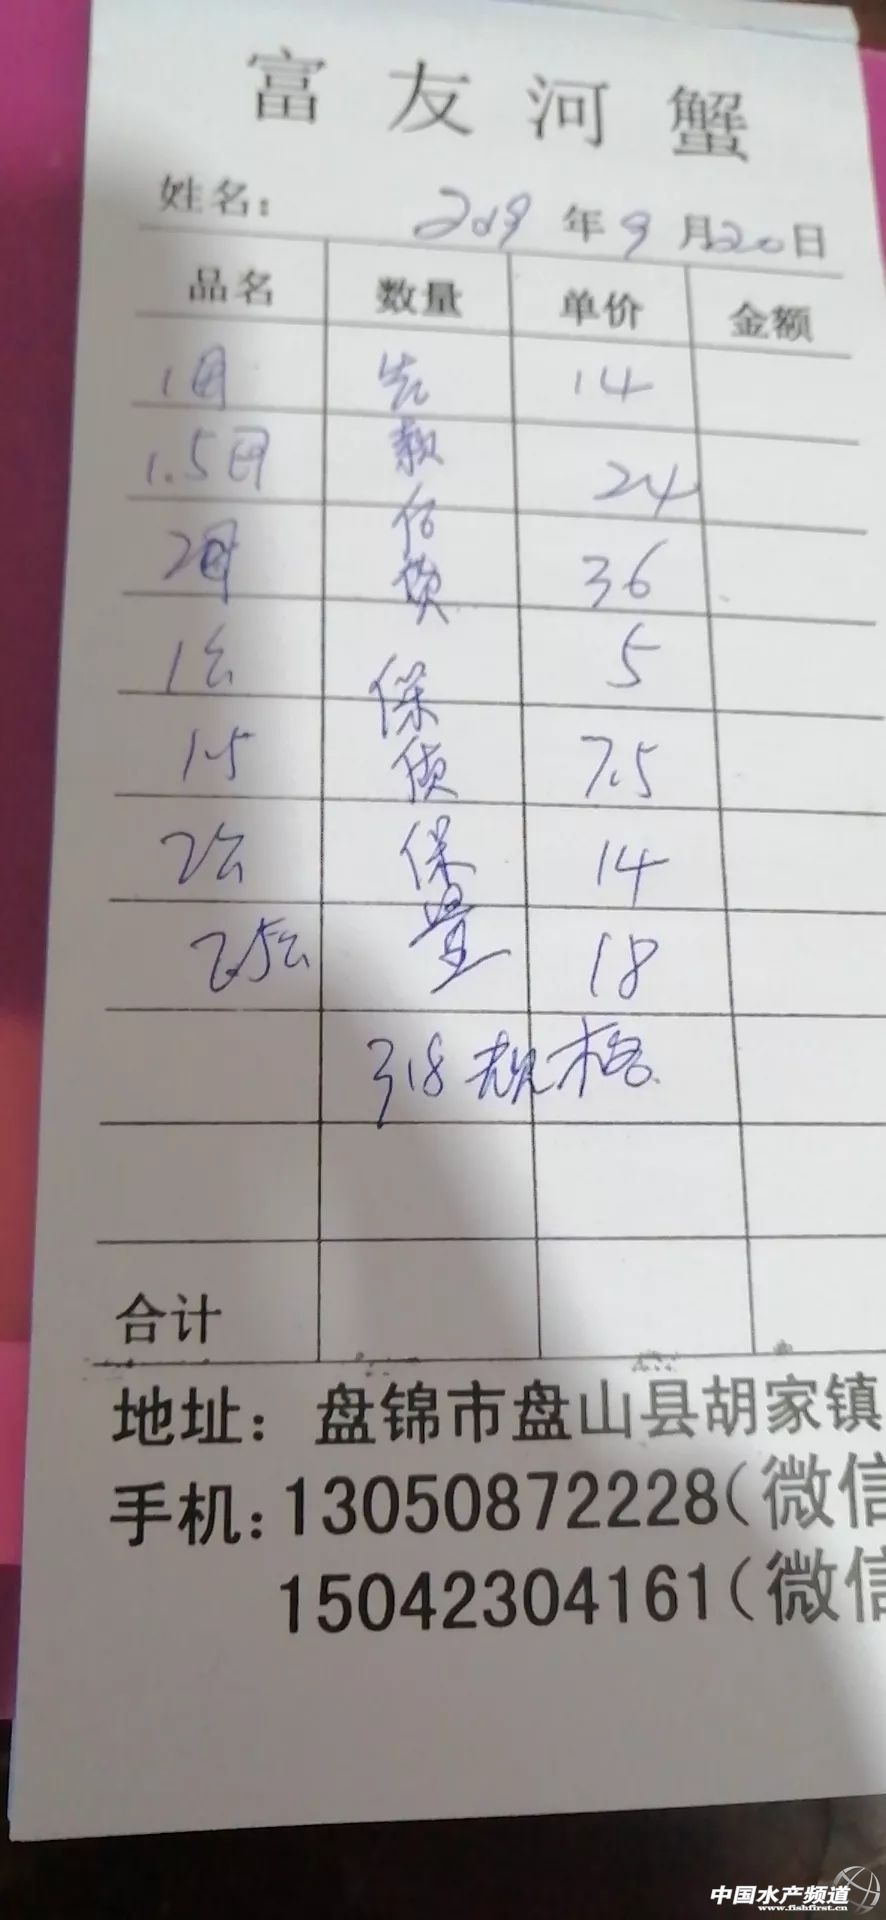 富友河蟹
姓名： 2019年9月20日
品名 数量 单价 金额
1母 先 14
1.5母 款 24
2母 后货 36
1公 保 5
1.5 质 7.5
2公 保 14
2.5公 量 18
318规格
合计
地址：盘锦市盘山县胡家镇
手机：13050872228（微信
15042304161（微信
中国水产频道
www.fishfirst.cn